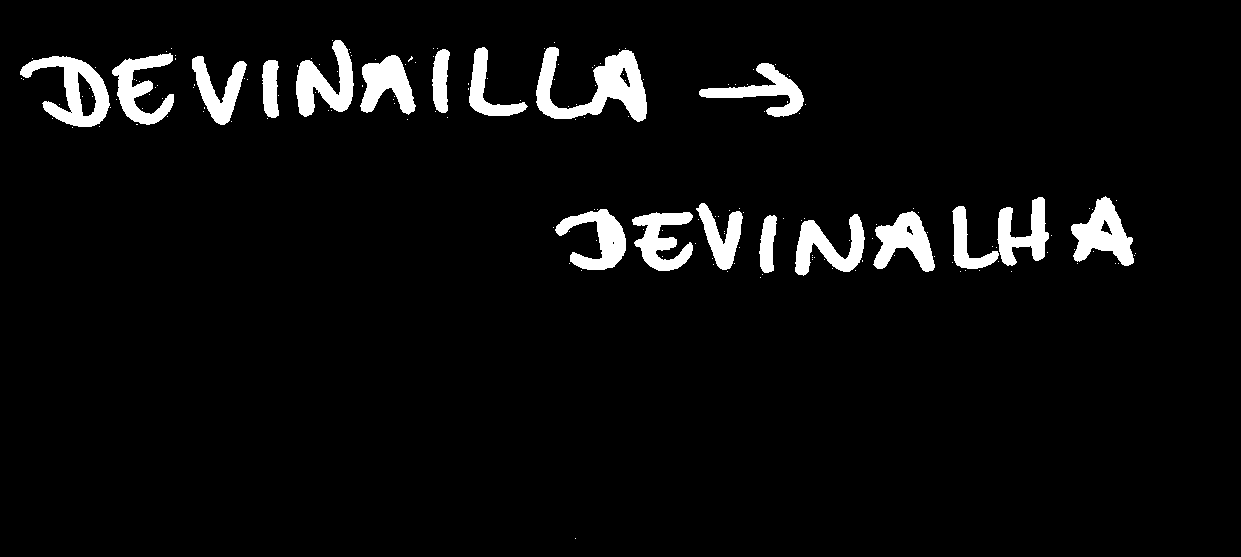 DEVINAILLA →
DEVINALHA